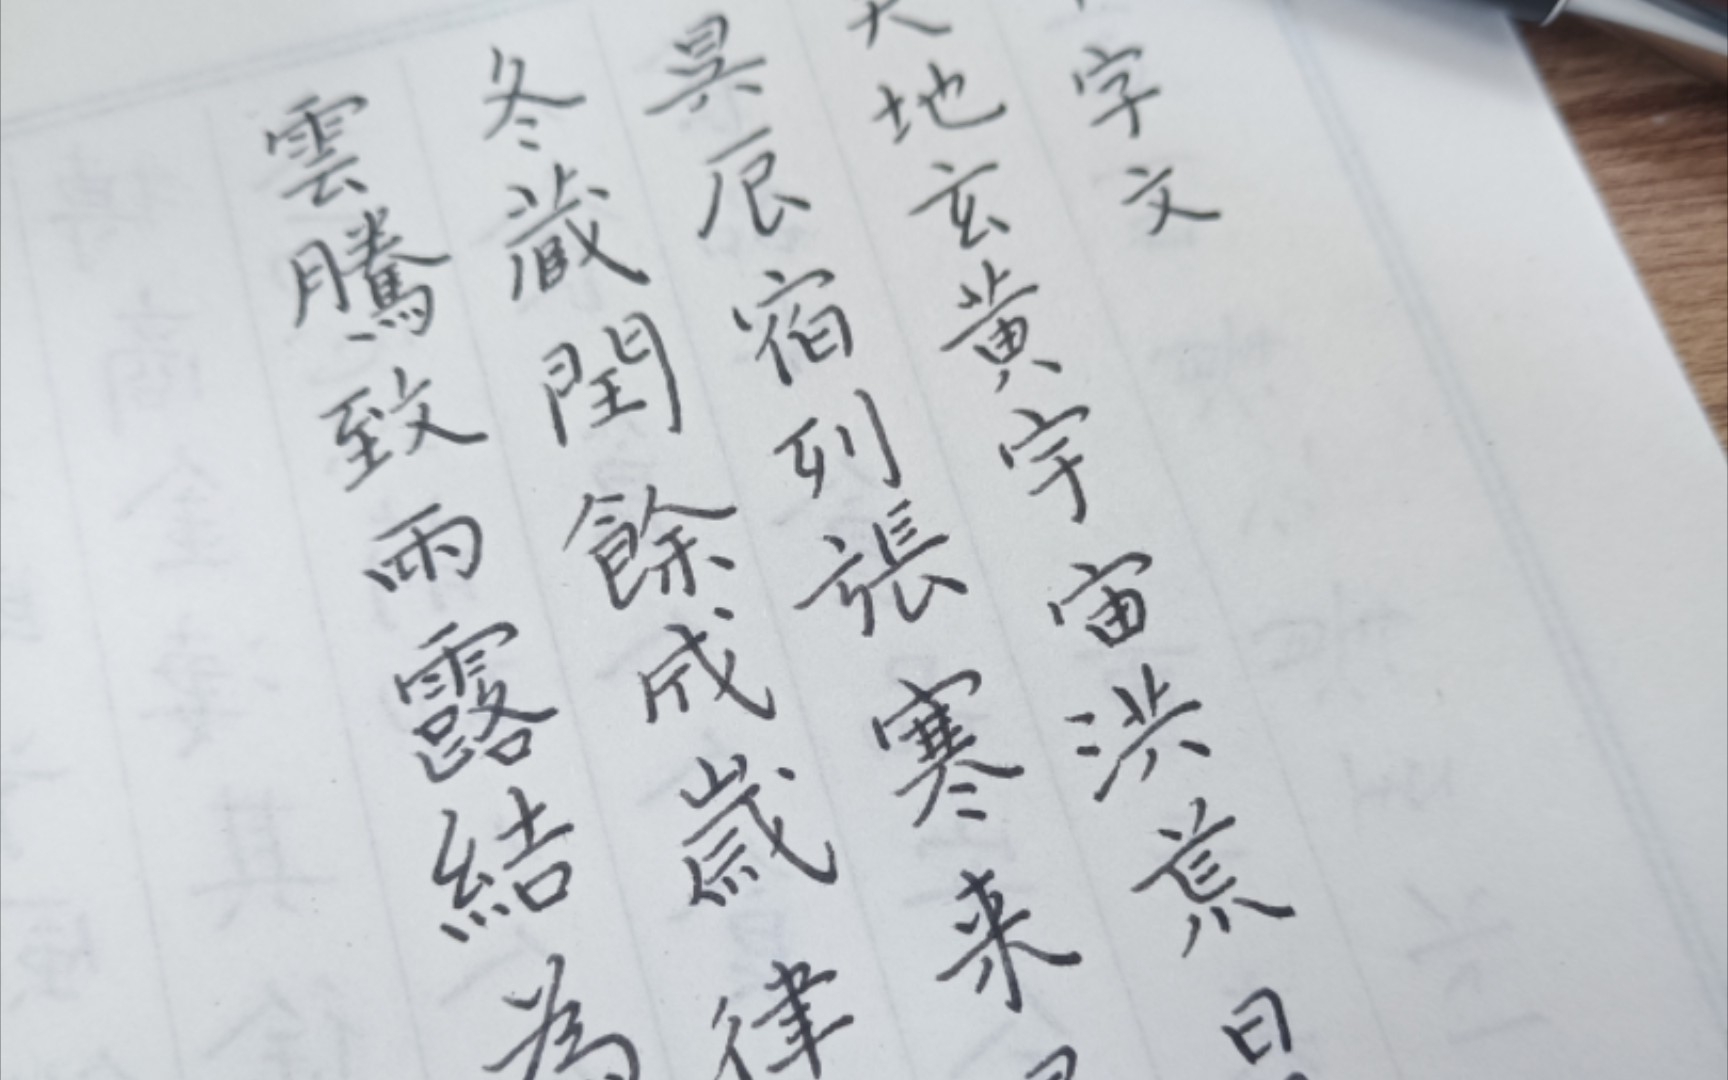 字文
天地玄黄宇宙洪荒日
昃辰宿列張寒来
冬藏閏餘成歲律
雲騰致雨露結為